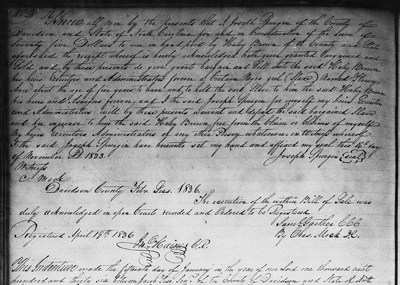 Know all men by the presents that I Joseph Spurgen of the County of
Davidson and State of North Carolina for and in Consideration of the sum of
Seventy five Dollars to me in hand paid by Haley Brown of the County and State
aforesaid the receipt whereof is hereby acknowledged hath given granted bargained and
Sold and by these presents do give grant bargain and Sell unto the said Haley Brown
his heirs Executors and Administrators forever a Certain Negro girl (Slave) Named
about the age of five years to have and to hold the said Slave to him the said Haley Brown
his heirs and Assigns forever, and I the said Joseph Spurgen for myself my heirs Executors
and Administrators will by these presents warrant and defend the said bargained Slave
unto him the said Haley Brown free from the Claim or Claims of myself
My heirs Executors Administrators or any other Person whatsoever, in witness whereof
I the said Joseph Spurgen have presents set my hand and affixed my seal this 16th day
of November AD 1833. Joseph Spurgen (seal)
Witness
C. Mock
Davidson County Feb. Sess. 1836.
The execution of the within Bill of Sale was
duly acknowledged in open Court recorded and Ordered to be Registered
Saml Gaither CCC
Registered April 19th 1836 By Chas. Mock DC.
This Indenture made the fifteenth day of January in the year of our Lord one thousand eight
hundred and thirty six between of the County of Davidson and State of North